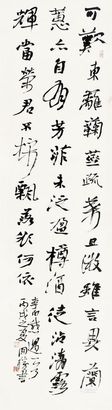 可歎東籬鞠莖疏葉且微雖言異蘭
蕙亦自有芳菲未泛盈樽酒徒沾清露
輝當榮君不採飄落欲何依
丙戌之夏